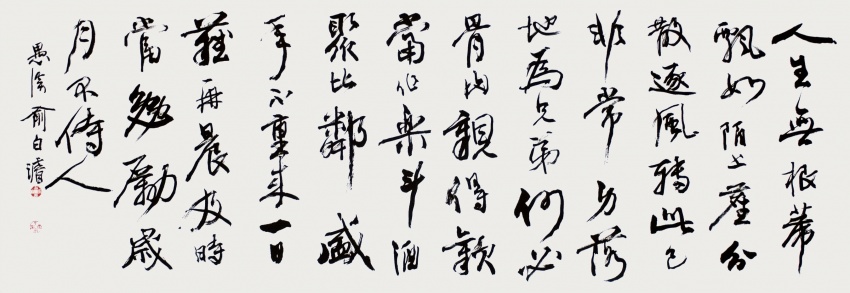 人生無根蒂
飄如陌上塵分
散逐風轉此已
非常身落
地為兄弟何必
骨肉親得歡
當作樂斗酒
聚比鄰盛
年不重來一日
難再晨及時
當勉勵歲
月不待人
愚陰俞白濤